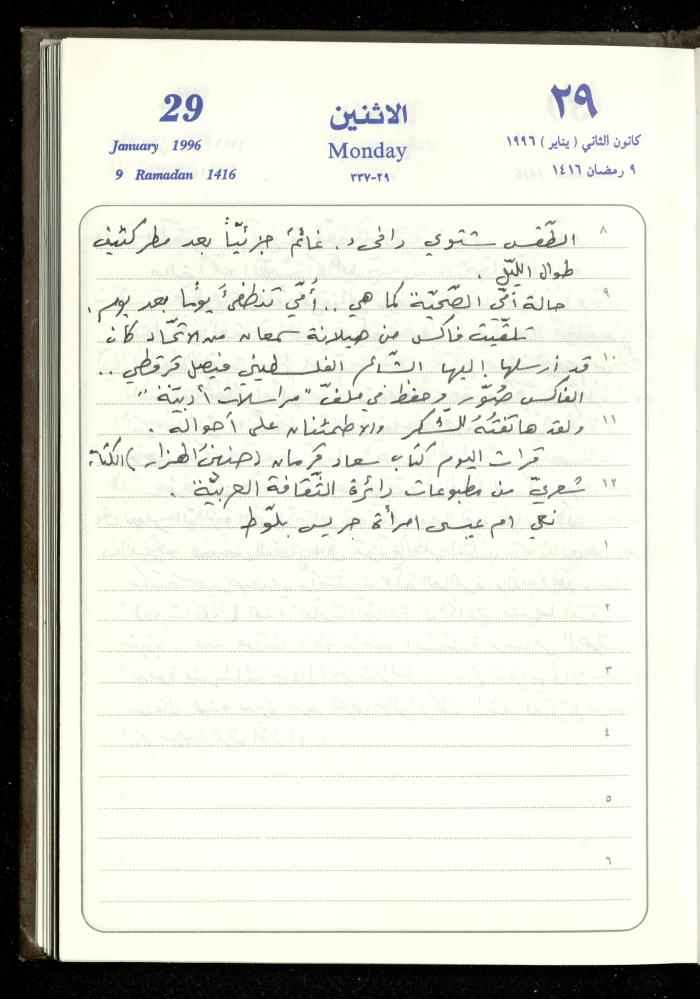 29
٢٩
الاثنين
January 1996
كانون الثاني ( يناير ) ١٩٩٦
Monday
9 Ramadan 1416
٩ رمضان ١٤١٦
٢٩-٣٣٧
٨
الطّقس شتوي دافىء. غائمٌ جزئيّاً بعد مطر كثيف
طوال الليّل .
٩
حالة أمّي الصّحيّة كما هي .. أُمّي تنطفئُ يومًا بعد يوم .
تلقّيت فاكس من هيلانة سمعان من الاتّحاد كان
١٠
قد أرسلها إليها الشّاعر الفلسطيني فيصل قرقطي ..
الفاكس صُوّر وحفظ في ملفّ "مراسلات أدبيّة"
١١
ولقد هاتفتُهُ للشّكر والاطمئنان على أحواله .
قرات اليوم كتاب سعاد قرمان (حنينُ الهزار)
١٢
شعريّ من مطبوعات دائرة الثّقافة العربيّة .
نعي ام عيسى امرأة جريس بلّوط
١
٢
٣
٤
٥
٦